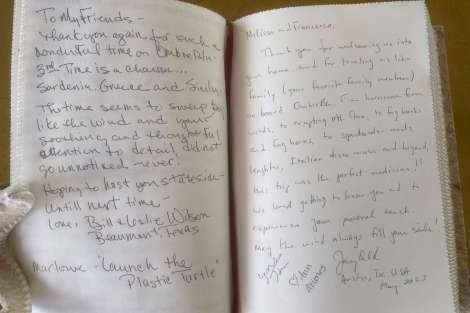 To My Friends -
Thank you again for such a
wonderful time on Ombre Blu -
3rd Time is a charm...
Sardenia, Greece and Sicily.
The time seems to sweep by
like the wind and your
soothing and thoughtful
attention to detail did not
go unnoticed - never!
Hoping to host you stateside -
Untill next time -
Love, Bill & Leslie Wilson
Beaumont, Texas
Marlowe - "Launch the
Plastic Turtle"
Melissa and Francesco,
Thank you for welcoming us into
your home and for treating us like
family (your favorite family members)
on board Ombreblu. From hurricane force
winds, to erupting off, to fog banks
and fog horns, to spectacular meals,
laughter, Italian disco music and beyond,
this trip was the perfect medicine!!
We loved getting to know you and to
experience your personal touch.
May the wind always fill your sails!
Austin, Tx USA
May 2023